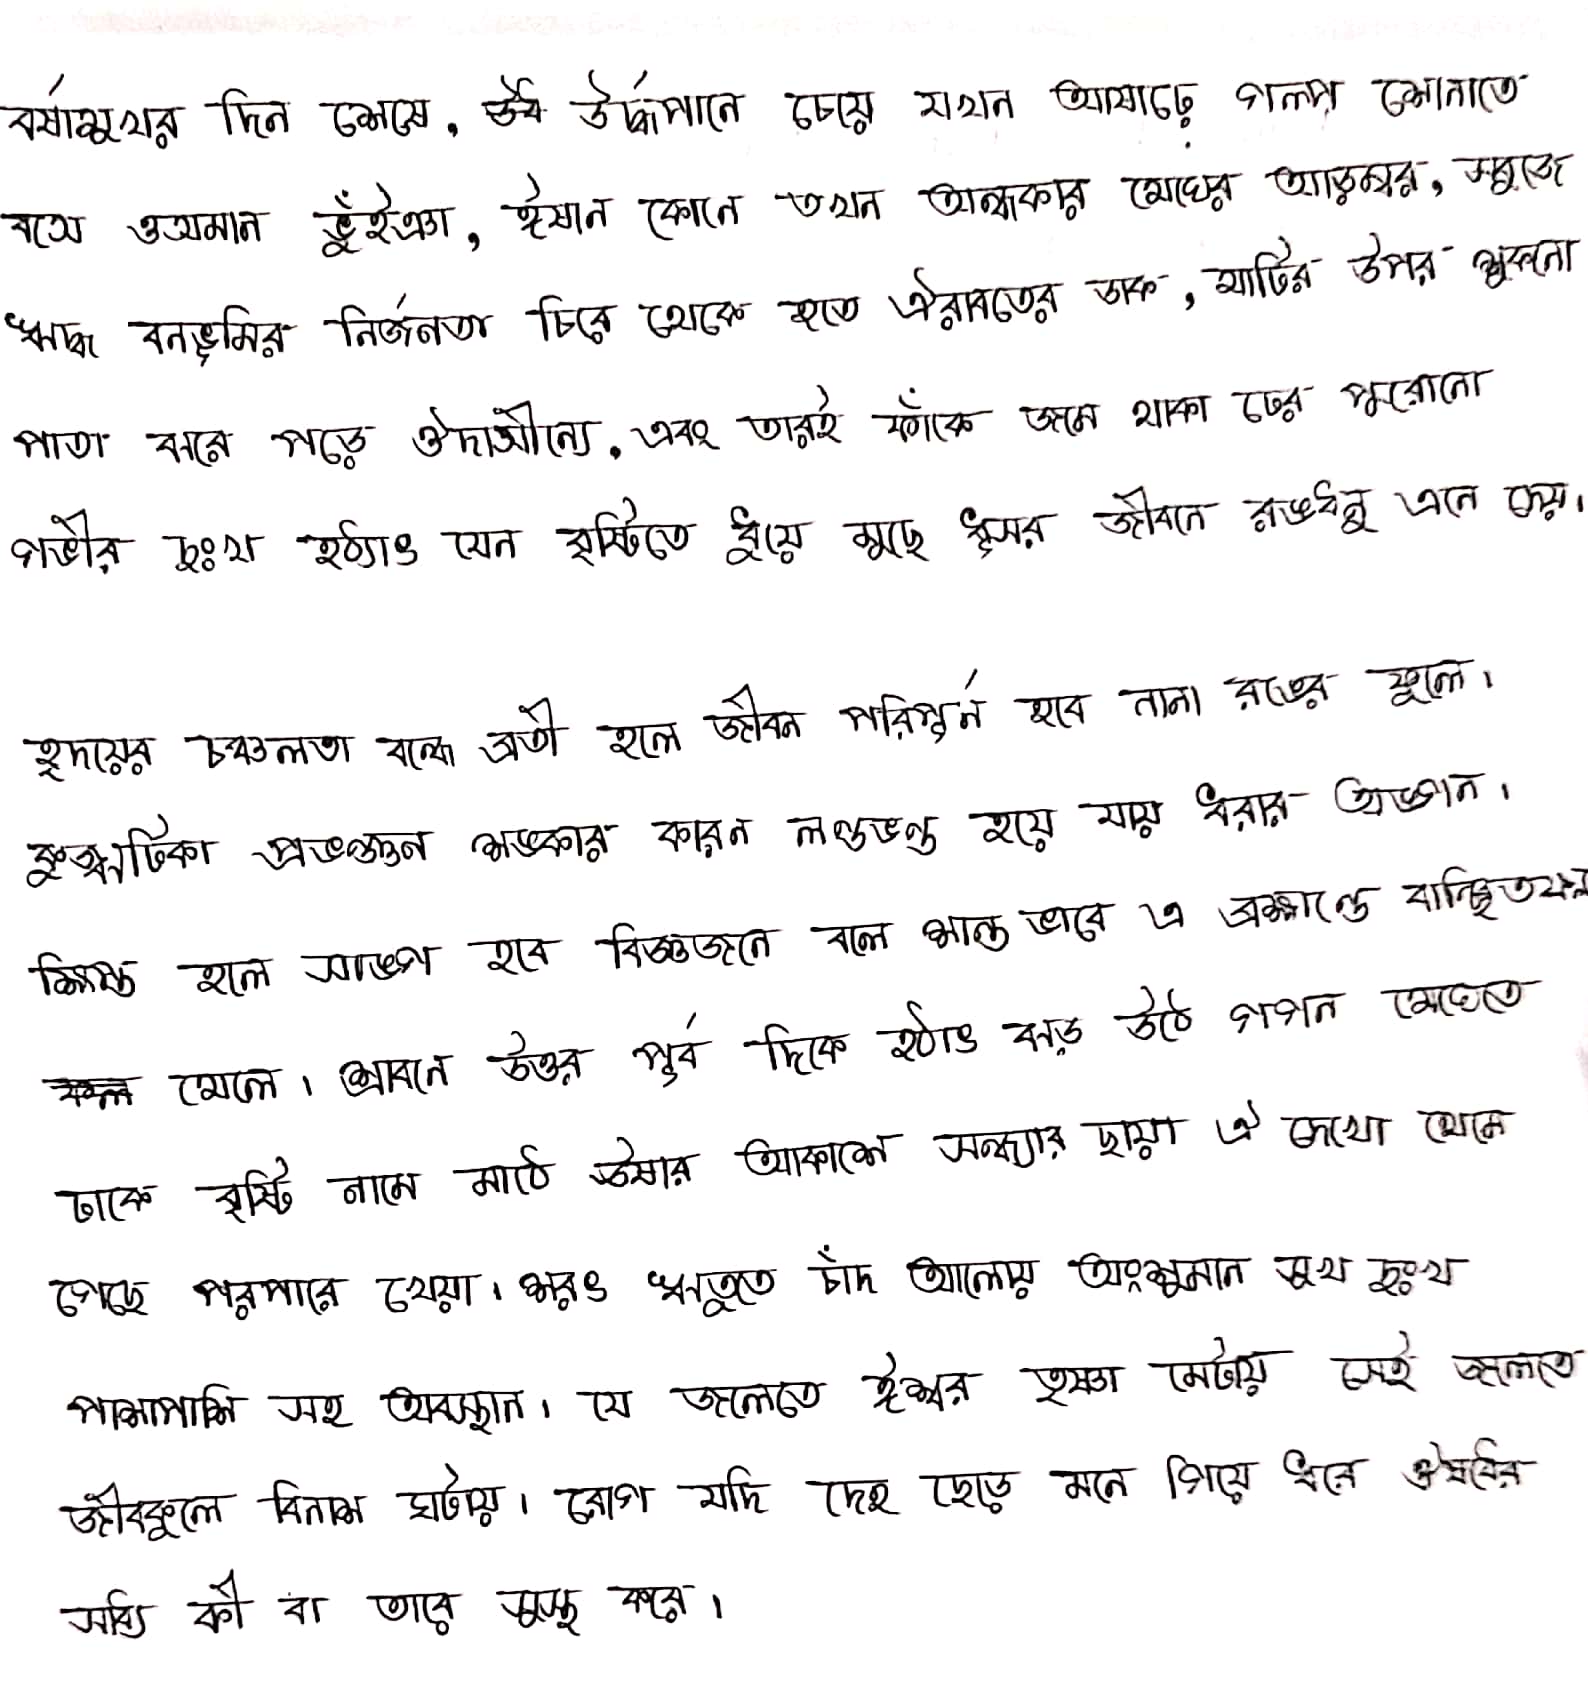 বর্ষামুখর দিন শেষে, উর্দ্ধপানে চেয়ে যখন আষাঢ়ে গল্প শোনাতে
বসে ওসমান ভুঁইঞা, ঈষান কোনে তখন অন্ধকার মেঘের আড়ম্বর, সবুজে
ঋদ্ধ বনভূমির নির্জনতা চিরে থেকে হতে ঐরাবতের ডাক, মাটির উপর শুকনো
পাতা ঝরে পড়ে ঔদাসীন্যে, এবং তারই ফাঁকে জমে থাকা ঢের পুরোনো
গভীর দুঃখ হঠ্যাৎ যেন বৃষ্টিতে ধুয়ে মুছে ধূসর জীবনে রঙধনু এনে দেয়।
হৃদয়ের চঞ্চলতা বন্ধে ব্রতী হলে জীবন পরিপূর্ন হবে নানা রঙের ফুলে।
কুজ্ঝটিকা প্রভঞ্জন শঙ্কার কারন লণ্ডভণ্ড হয়ে যায় ধরার অঙ্গন।
ক্ষিপ্ত হলে সাঙ্গ হবে বিজ্ঞজনে বলে শান্ত ভাবে এ ব্রহ্মাণ্ডে বাঞ্ছিতফল
মেলে। শ্রাবনে উত্তর পূর্ব দিকে হঠাৎ ঝড় উঠে গগন মেঘেতে
ঢাকে বৃষ্টি নামে মাঠে ঊষার আকাশে সন্ধ্যার ছায়া ঐ দেখো থেমে
গেছে পরপারে খেয়া। শরৎ ঋতুতে চাঁদ আলোয় অংশুমান সুখ দুঃখ
পাশাপাশি সহ অবস্থান। যে জলেতে ঈশ্বর তৃষ্ণা মেটায় সেই জলেতে
জীবকুলে বিনাশ ঘটায়। রোগ যদি দেহ ছেড়ে মনে গিয়ে ধরে ঔষধের
সাধ্যি কী বা তারে সুস্থ করে।